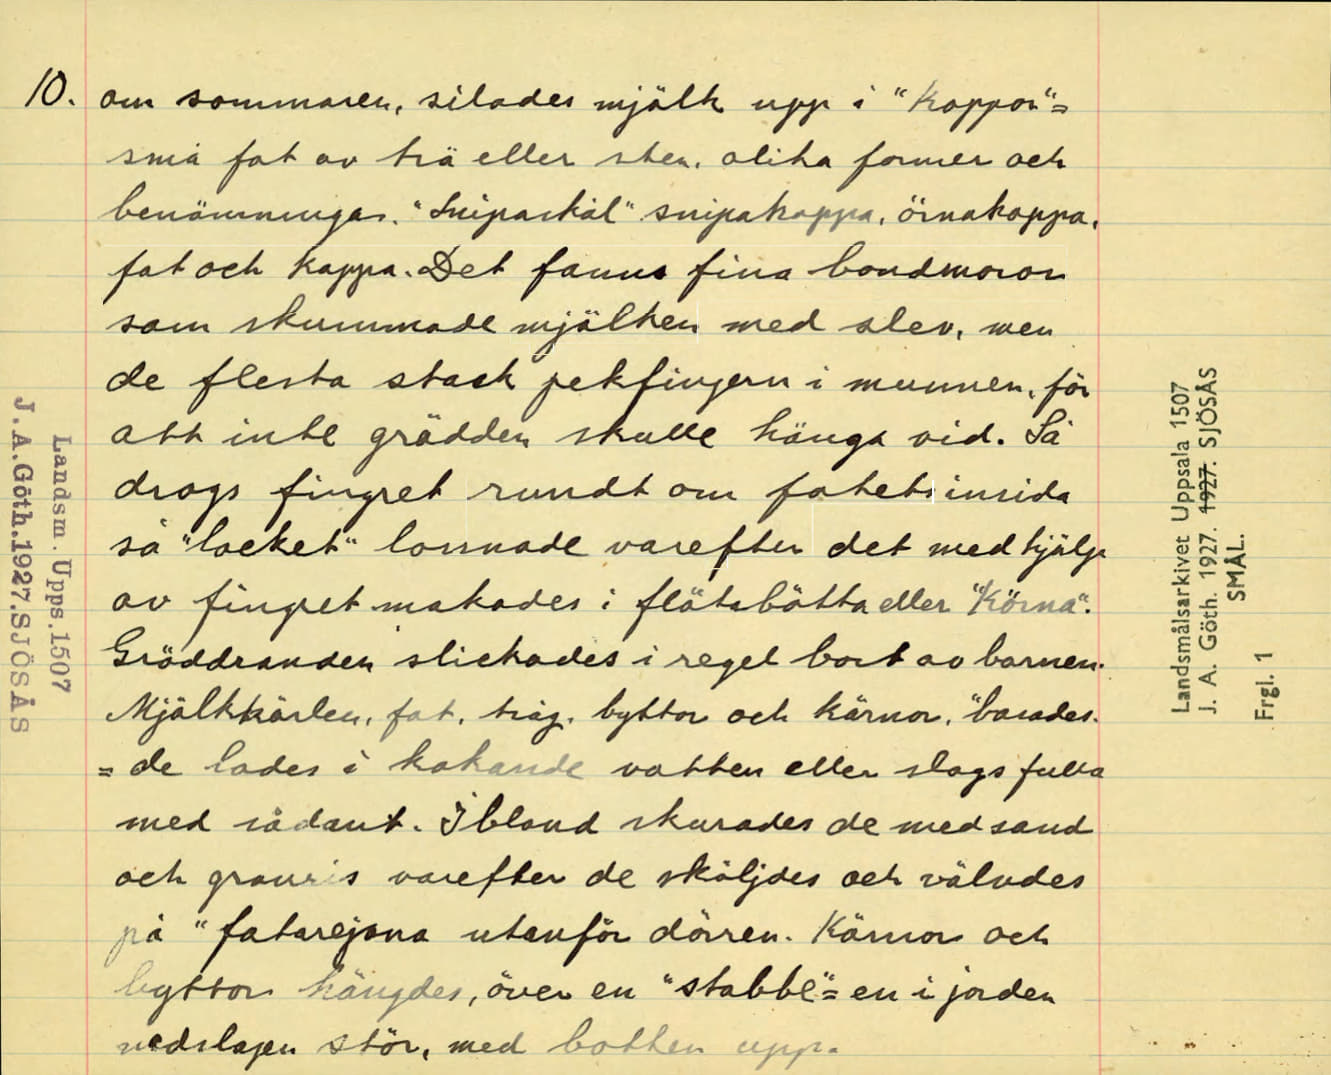 10. om sommaren, silades mjölk upp i "Koppor"=
små fat av trä eller sten. olika former och
benämningar. "Snipaskål" snipakoppa, örnakoppa,
fat och kappa. Det fanns fina bondmoror
som skummade mjölken med slev, men
de flesta stack pekfingern i munnen, för
att inte grädden skulle hänga vid. Så
drogs fingret rundt om fatets insida
så "locket" lossnade varefter det med hjälp
av fingret makades i flötabötta eller "Körna".
Gräddranden slickades i regel bort av barnen.
Mjölkkärlen, fat, tråg, byttor och kärnor, "basades.
= de lades i kokande vatten eller slogs fulla
med sådant. Ibland skurades de med sand
och granris varefter de sköljdes och välvdes
på "fatarejona utanför dörren. Kärnor och
byttor hängdes, över en "stabbe"= en i jorden
nedslagen stör, med botten upp.
Landsm. Upps. 1507
J.A.Göth.1927.SJÖSÅS
Landsmålsarkivet Uppsala 1507
J. A. Göth. 1927. 1927. SJÖSÅS
SMÅL.
Frgl. 1